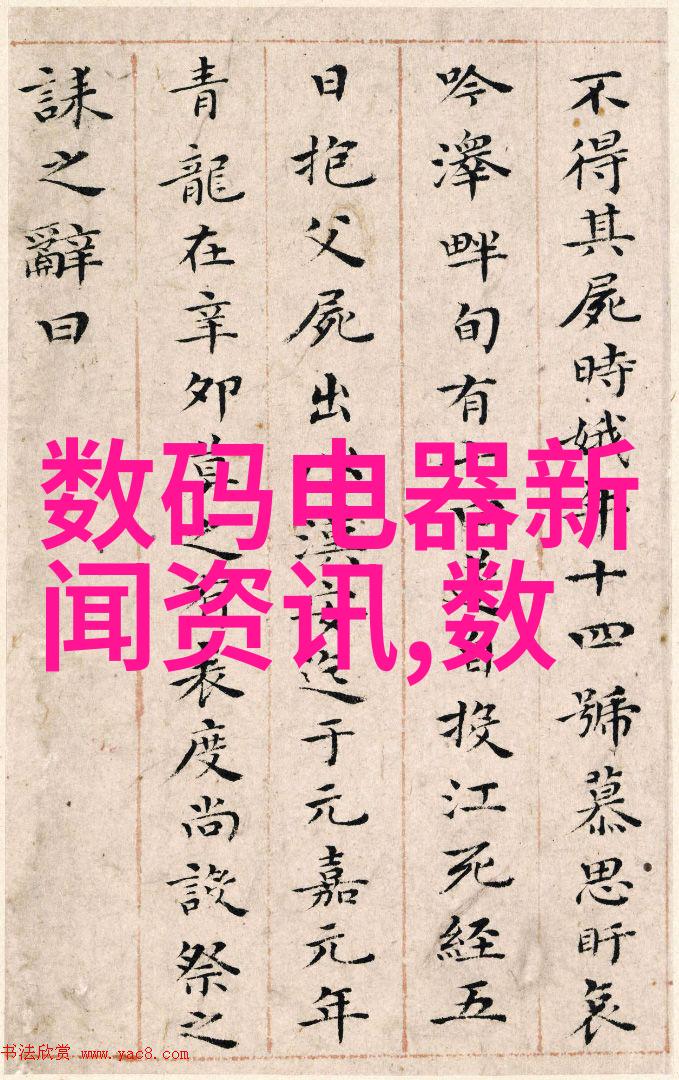 不得其屍時娥年十四號慕思盱哀
吟澤畔旬有自投江死經五
日抱父屍出漢安迄于元嘉元年
青龍在辛卯莫之有表度尚設祭之
誄之辭曰
数码电器新
闻资讯,数
书法欣赏 www.yac8.com